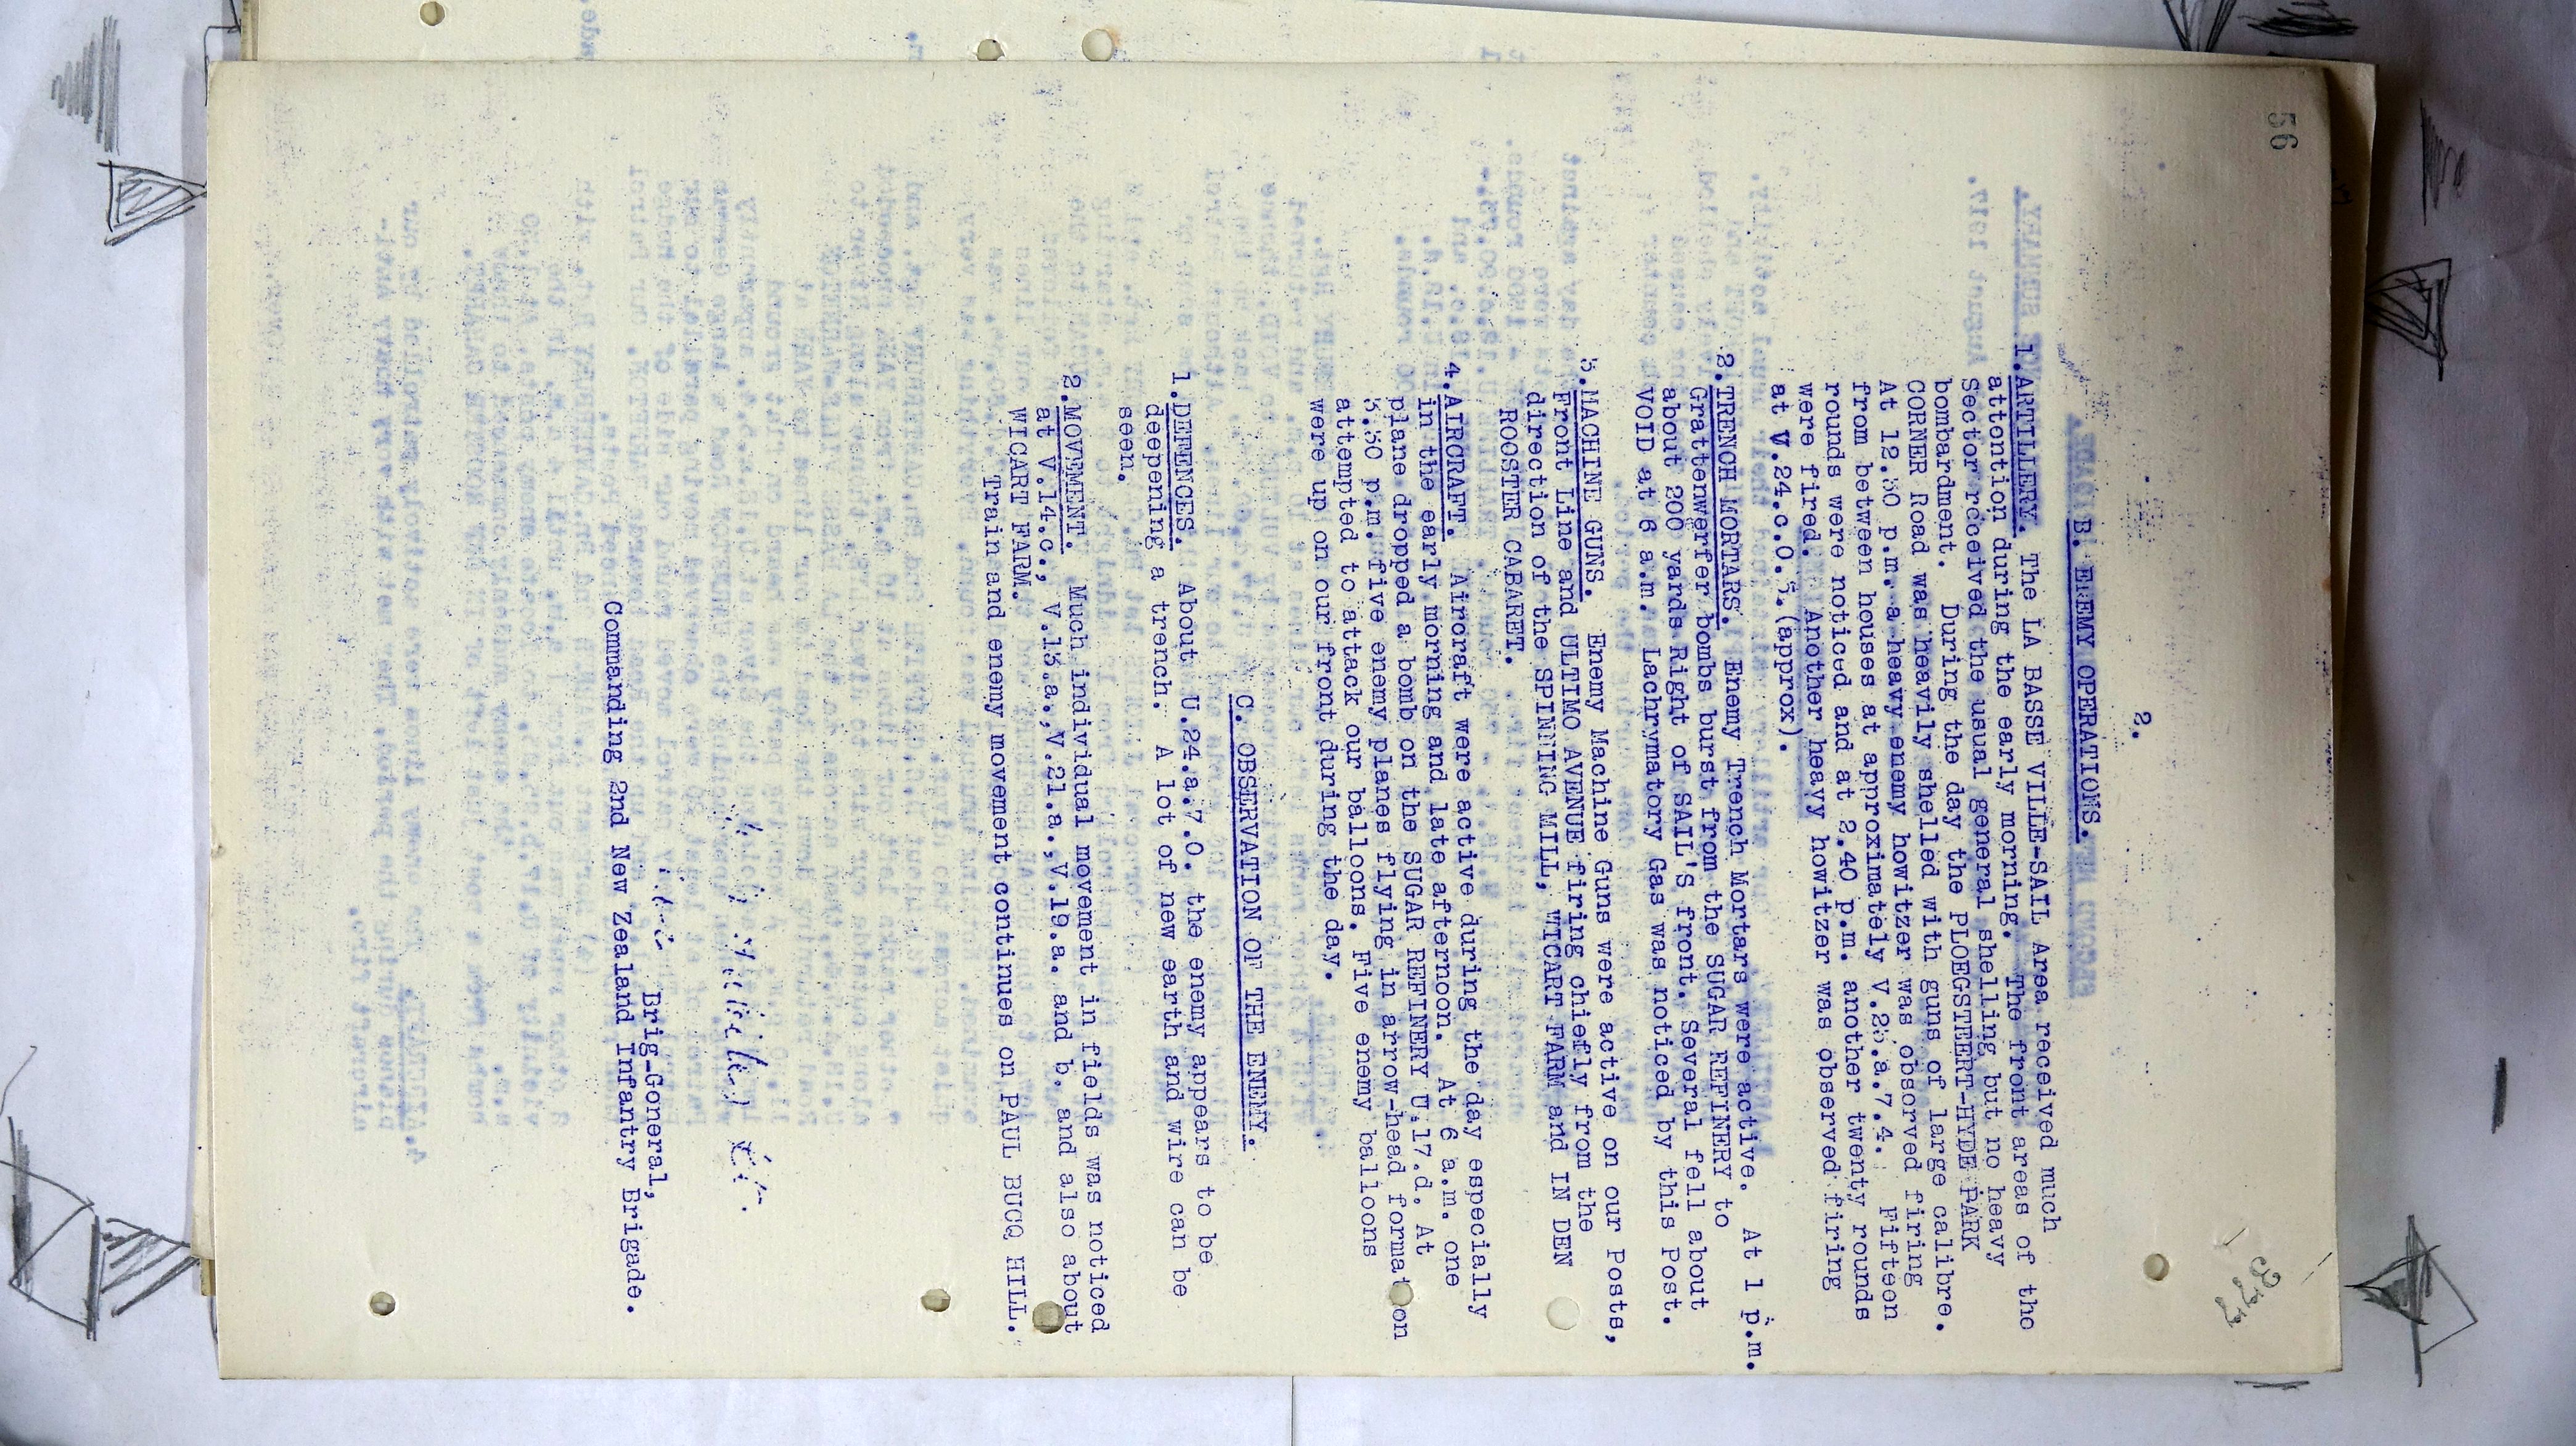 56
2.
B. ENEMY OPERATIONS.
1. ARTILLERY. The LA BASSE VILLE-SAIL Area received much
attention during the early morning. The front areas of the
Sector received the usual general shelling but no heavy
bombardment. During the day the PLOEGSTEERT-HYDE PARK
CORNER Road was heavily shelled with guns of large calibre.
At 12.30 p.m. a heavy enemy howitzer was observed firing
from between houses at approximately V.25.a.7.4. Fifteen
rounds were noticed and at 2.40 p.m. another twenty rounds
were fired. Another heavy howitzer was observed firing
at V.24.c.0.5.(approx).
2. TRENCH MORTARS. Enemy Trench Mortars were active. At 1 p.m.
Grattenwerfer bombs burst from the SUGAR REFINERY to
about 200 yards Right of SAIL'S front. Several fell about
VOID at 6 a.m. Lachrymatory Gas was noticed by this Post.
3. MACHINE GUNS. Enemy Machine Guns were active on our Posts,
Front Line and ULTIMO AVENUE firing chiefly from the
direction of the SPINNING MILL, WICART FARM and IN DEN
ROOSTER CABARET.
4. AIRCRAFT. Aircraft were active during the day especially
in the early morning and late afternoon. At 6 a.m. one
plane dropped a bomb on the SUGAR REFINERY U.17.d. At
3.30 p.m. five enemy planes flying in arrow-head format on
attempted to attack our balloons. Five enemy balloons
were up on our front during the day.
C. OBSERVATION OF THE ENEMY.
1. DEFENCES. About U.24.a.7.0. the enemy appears to be
deepening a trench. A lot of new earth and wire can be
seen.
2. MOVEMENT. Much individual movement in fields was noticed
at V.14.c., V.13.a., V.21.a., V.19.a. and b. and also about
WICART FARM.
Train and enemy movement continues on PAUL BUCQ HILL.
Brig-General,
Commanding 2nd New Zealand Infantry Brigade.